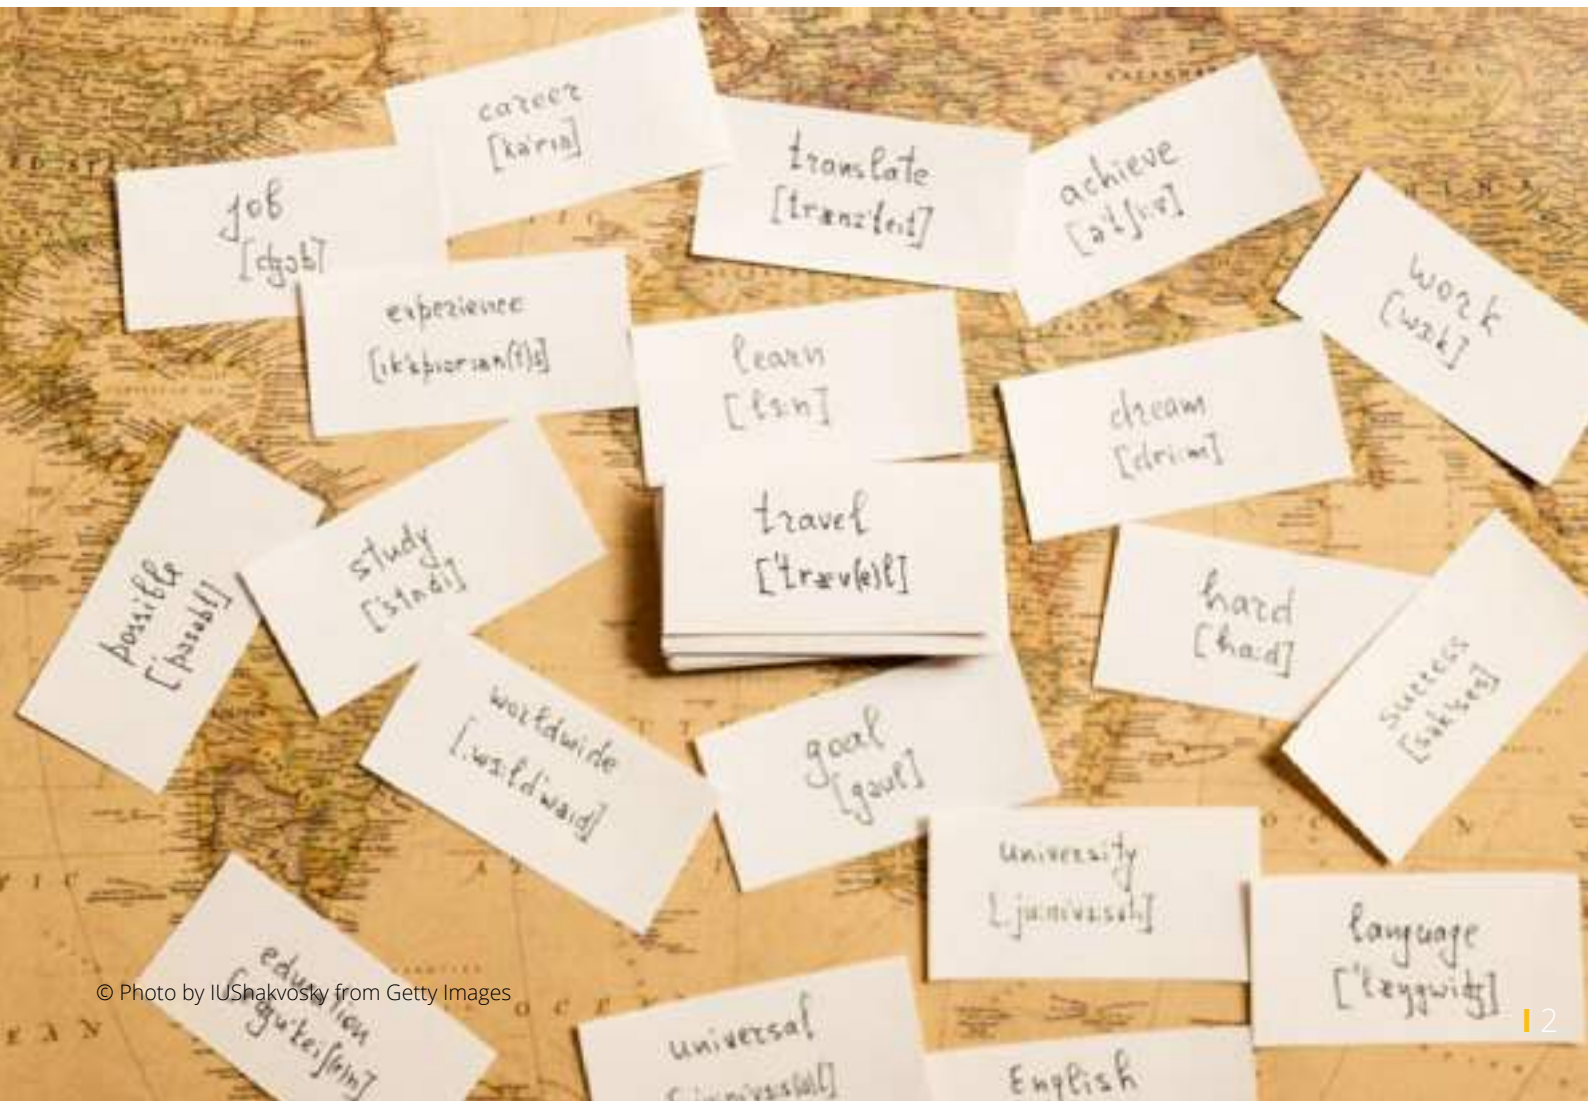 career
[kə'rɪə]
job
[ʤɔb]
translate
[trænz'leɪt]
achieve
[ə'tʃi:v]
work
[wɜ:k]
experience
[ɪk'spɪərɪən(t)s]
learn
[lɜ:n]
dream
[dri:m]
travel
['træv(ə)l]
possible
['pɔsəbl]
study
['stʌdi]
hard
[hɑ:d]
success
[sək'ses]
worldwide
[ˌwɜ:ld'waɪd]
goal
[gəul]
university
[ˌju:nɪ'vɜ:sətɪ]
language
['læŋgwɪʤ]
education
universal
English
© Photo by IUShakvosky from Getty Images
2